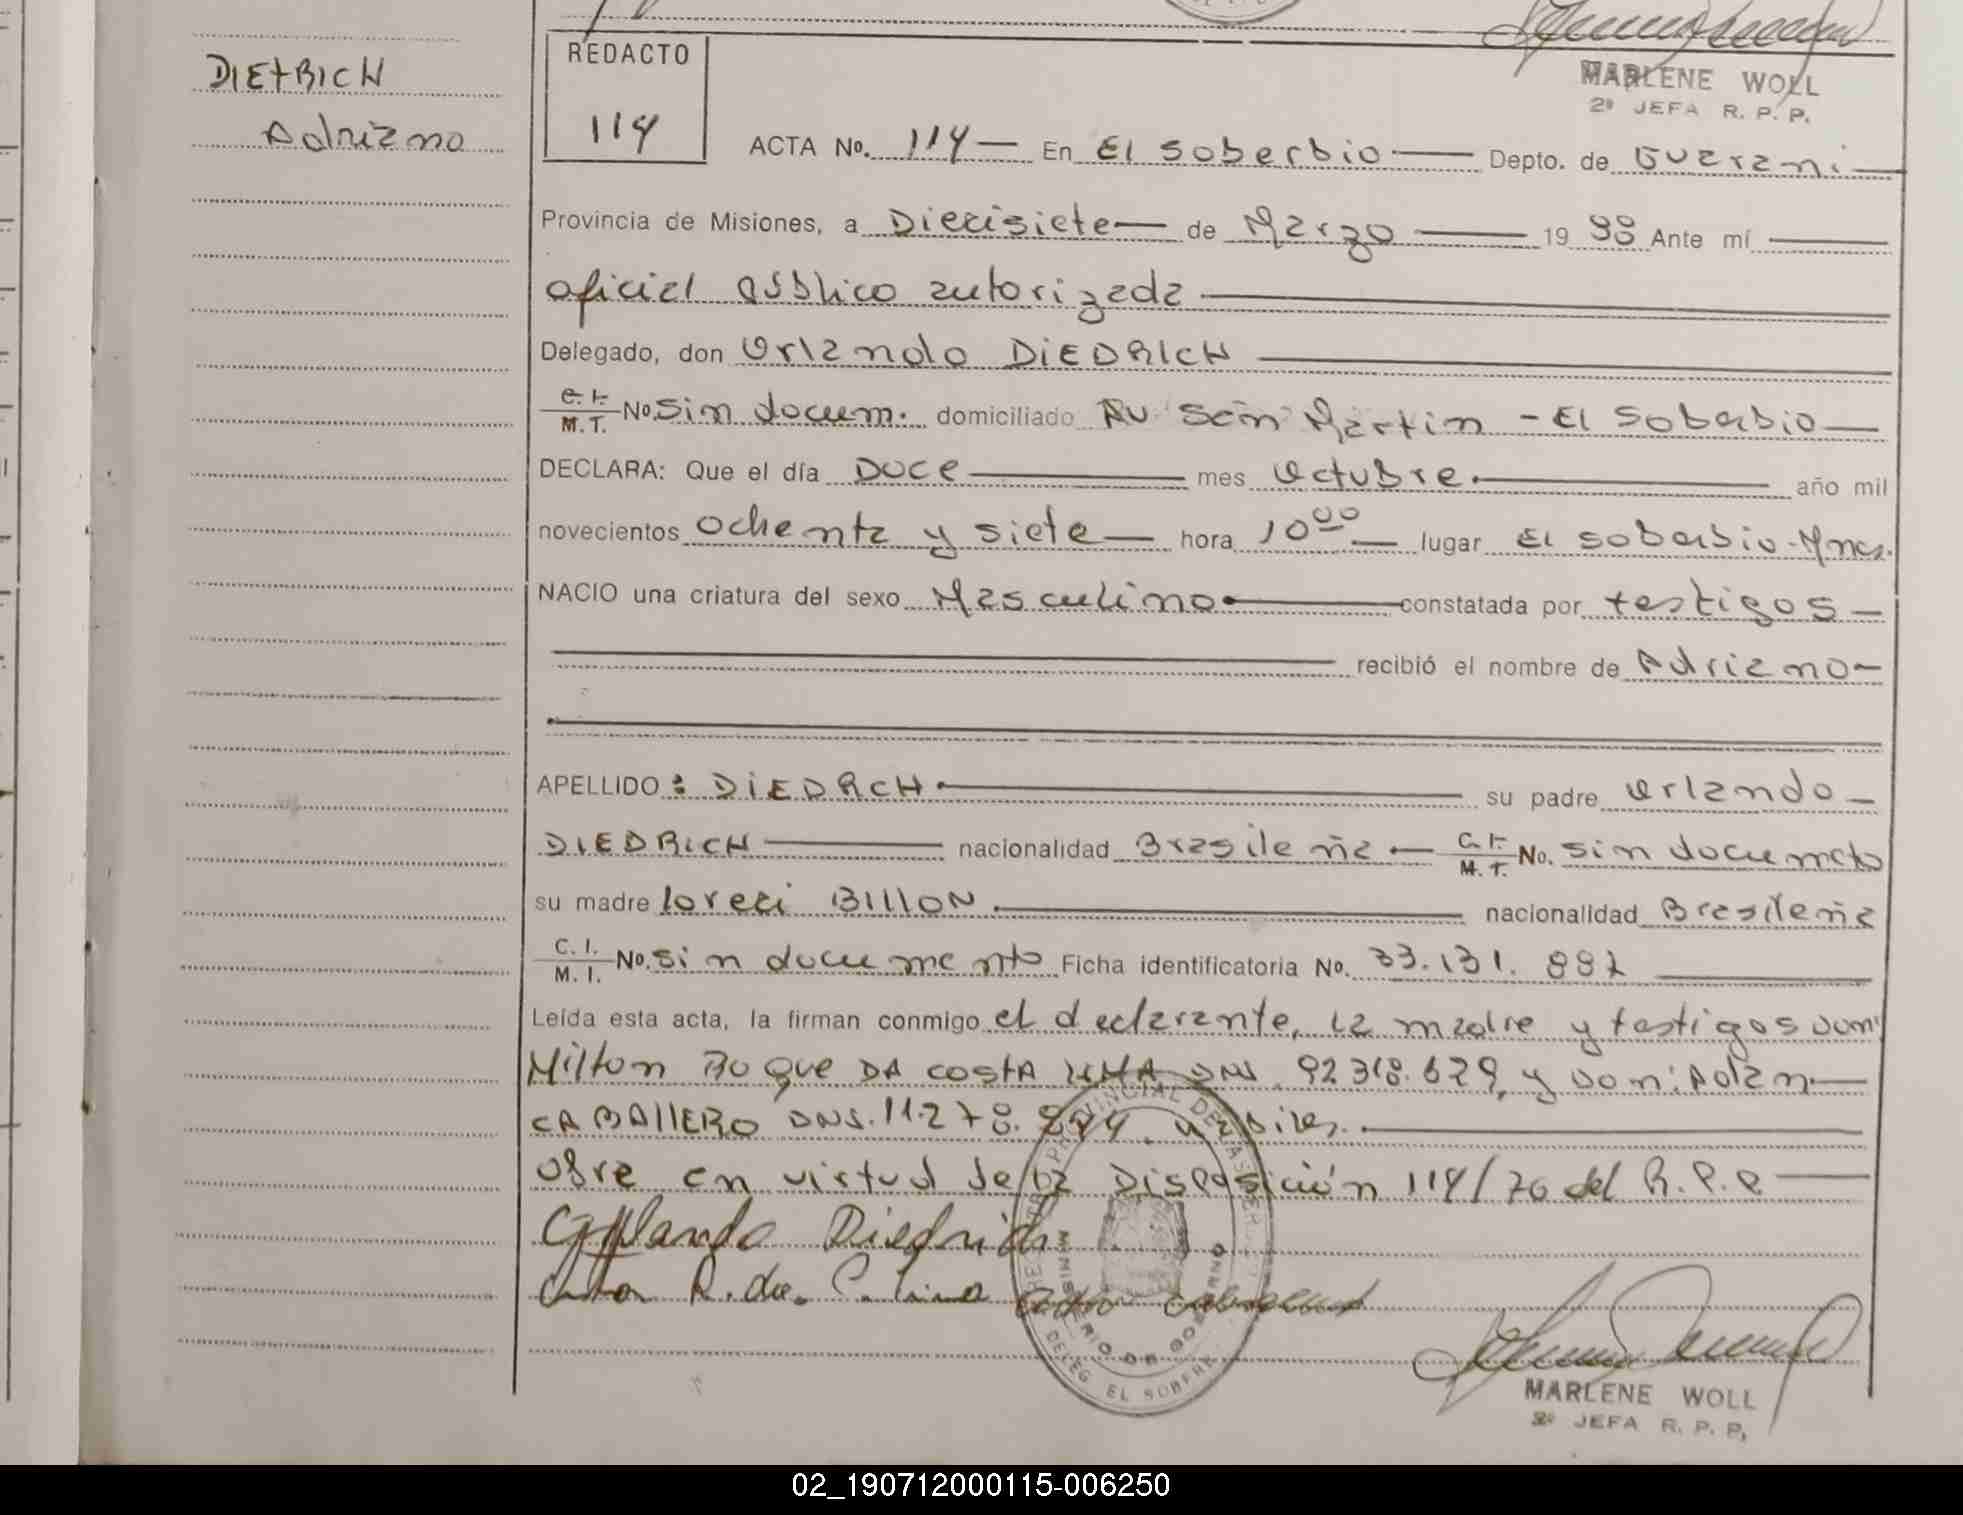 MARLENE WOLL
2º JEFA R. P. P.
DIEtRICH
Adriano
REDACTO
114
ACTA No. 114 — En El soberbio — Depto. de Guarani —
Provincia de Misiones, a Diecisiete — de Marzo — 19 88 Ante mí —
oficial público autorizada —
Delegado, don Orlando DiEDRICH —
C.I. M.T. No. sin docum. domiciliado Av San Martin - El Soberbio —
DECLARA: Que el día DOCE — mes Octubre — año mil
novecientos ochenta y siete — hora 10 00 — lugar El soberbio - Mnes.
NACIO una criatura del sexo Masculino — constatada por testigos —
recibió el nombre de Adriano —
APELLIDO : DiEDRCH — su padre Orlando —
DIEDRICH — nacionalidad Brasileña — C.I. M.T. No. sin documeto
su madre loreci BIllON — nacionalidad Brasileña
C. I. M. I. No. sin documento Ficha identificatoria No. 33.131.882 —
Leída esta acta, la firman conmigo el declarante, la madre y testigos don:
Milton Roque DA COSTA LIMA DNI 92.318.629, y don: Adlan —
CABAllERO DNI. 11.278.824. habiles. —
Obre en virtud de la Disposición 114/76 del R.P.P —
Orlando Diedrich
R. da C. Lima
PROVINCIAL DE LAS PERSONAS
MINISTERIO DE GOBIERNO
DELEG. EL SOBERBIO
MARLENE WOLL
2º JEFA R. P. P.
02_190712000115-006250